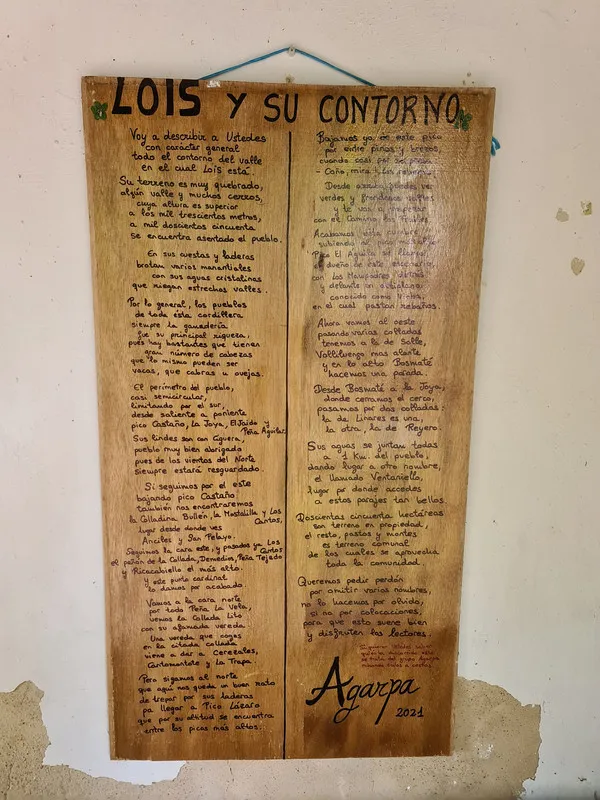 LOIS Y SU CONTORNO
Voy a describir a Ustedes
con carácter general
todo el contorno del valle
en el cual Lois está.
Su terreno es muy quebrado,
algún valle y muchos cerros,
cuya altura es superior
a los mil trescientos metros,
a mil doscientos cincuenta
se encuentra asentado el pueblo.
En sus cuestas y laderas
brotan varios manantiales
con sus aguas cristalinas
que riegan estrechos valles.
Por lo general, los pueblos
de toda esta cordillera
siempre la ganadería
fue su principal riqueza,
pues hay bastantes que tienen
gran número de cabezas
que lo mismo pueden ser
vacas, que cabras u ovejas.
El perímetro del pueblo,
casi semicircular,
limitando por el sur,
desde saliente a poniente
pico Castaño, La Joya, El Jaido y
Peña Aguilar.
Sus lindes son con Ciguera,
pueblo muy bien abrigado
pues de los vientos del Norte
siempre estará resguardado.
Si seguimos por el este
bajando pico Castaño
también nos encontraremos
la Colladina Bullén, la Mostalilla y Los
Cantos,
lugar desde donde ves
Anciles y San Pelayo.
Seguimos la cara este, y pasados ya Los
Cantos
el peñón de la Collada, Demedios, Peña Tejedo
y Ricacabiello el más alto.
Y este punto cardinal
lo damos por acabado.
Vamos a la cara norte
por toda Peña La Vela,
vemos la Collada Lito
con su afamada vereda.
Una vereda que coges
en la citada collada
viene a dar a Cerezales,
Cantomontote y La Trapa.
Pero sigamos al norte
que aquí nos queda un buen rato
de trepar por sus laderas
pa llegar a Pico Lázaro
que por su altitud se encuentra
entre los picos más altos.
Bajamos ya de este pico
por entre piornos y brezos,
cuando casi por se
- Coño, mira! Los
Desde arriba puedes ver
verdes y frondosos valles
y te vas a
con el Camino los
Acabamos esta cumbre
subiendo al
Pico El Aguila se llama,
el dueño de este
con los
y delante un
conocido como
en el cual pastan rebaños.
Ahora vamos al oeste
pasando varias colladas
tenemos a la de Salle,
Valliluengo mas alante
y en lo alto Bosmaté
hacemos una parada.
Desde Bosmaté a la Joya,
donde cerramos el cerco,
pasamos por dos colladas:
la de Linares es una,
la otra, la de Reyero.
Sus aguas se juntan todas
a 1 Km. del pueblo,
dando lugar a otro nombre,
el llamado Ventaniello,
lugar por donde accedes
a estos parajes tan bellos.
Doscientas cincuenta hectáreas
son terreno en propiedad,
el resto, pastos y montes
es terreno comunal
de los cuales se aprovecha
toda la comunidad.
Queremos pedir perdón
por omitir varios nombres,
no lo hacemos por olvido,
si no por colocaciones,
para que esto suene bien
y disfruten los lectores.
Agarpa
2021